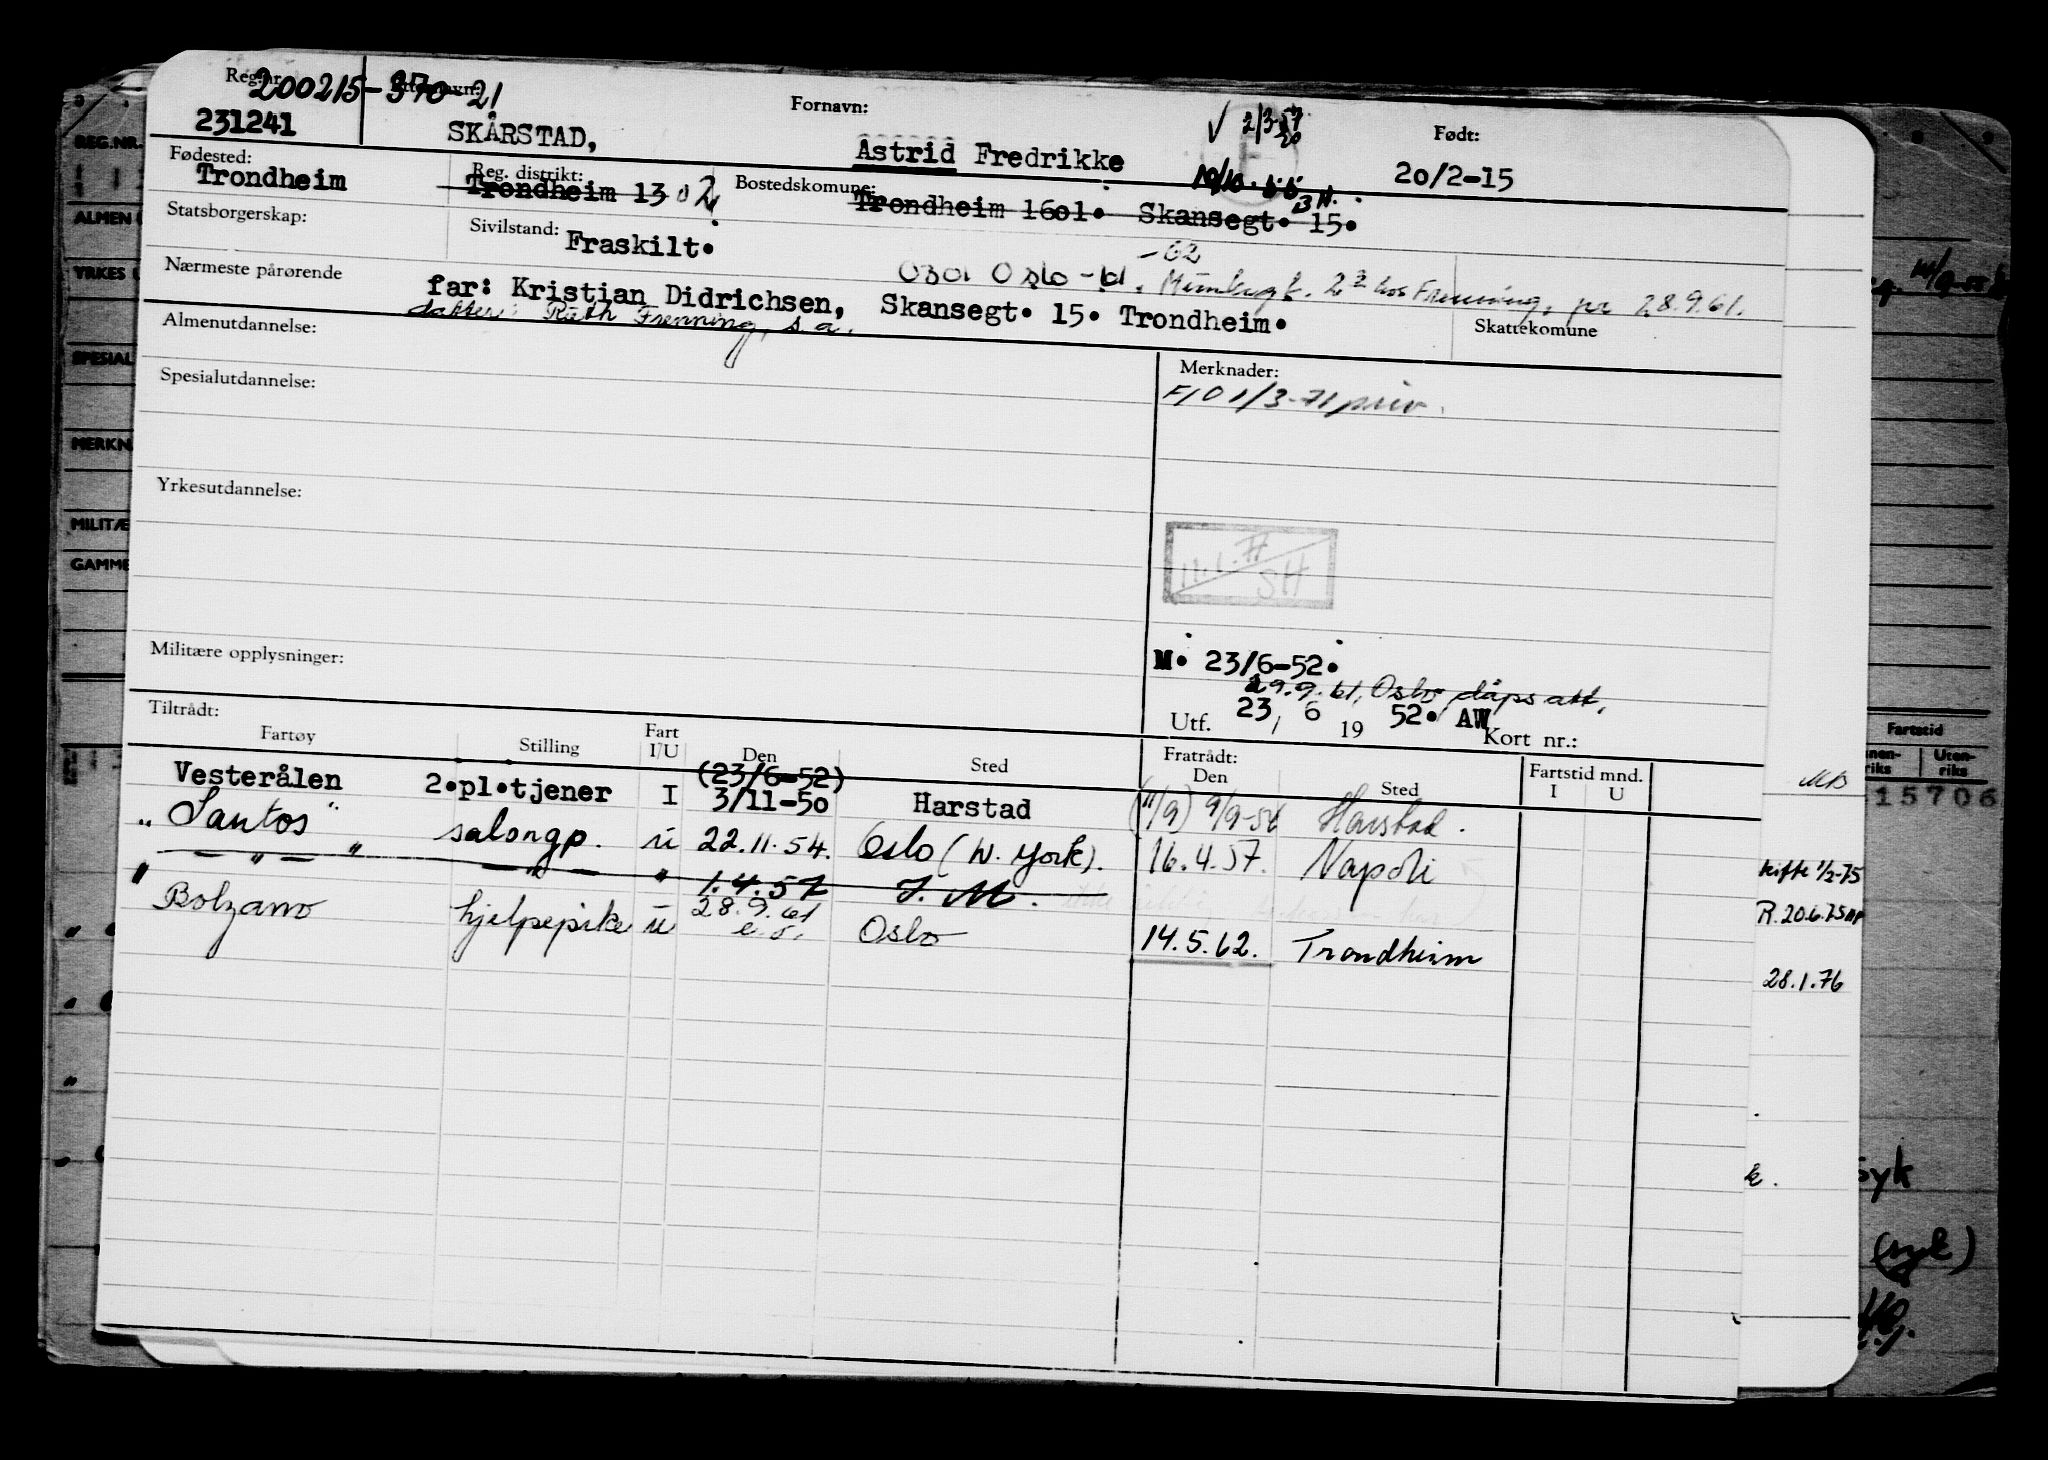 Reg.nr. 200215-370-21
231241 SKÅRSTAD, Fornavn: Astrid Fredrikke Født: 20/2-15
√ 2/3 57
Fødested: Trondheim Reg. distrikt: Trondheim 13 02 Bostedskomune: Trondheim 1601. Skansegt. 15.
Statsborgerskap: Sivilstand: Fraskilt.
-62
0301 Oslo -61, Munkegt. 2 hos Frenning, pr 28.9.61.
Nærmeste pårørende far: Kristian Didrichsen, Skansegt. 15. Trondheim.
datter: Ruth Frenning, s.a.
Almenutdannelse: Skattekomune
Spesialutdannelse: Merknader:
F/O 1/3-71 priv.
Yrkesutdannelse:
SH
Militære opplysninger: M. 23/6-52.
29.9.61, Oslo dåpsatt.
Utf. 23, 6 19 52. AW Kort nr.:
Tiltrådt: Fratrådt:
Fartøy Stilling Fart I/U Den Sted Den Sted Fartstid mnd. I U
(23/6-52)
Vesterålen 2.pl.tjener I 3/11-50 Harstad (11/9) 9/9-54 Harstad.
"Santos" salongp. u 22.11.54. Oslo (N. York). 16.4.57. Napoli
— " — " — " — " 1.4.57 S. M.
"Bolzano hjelpepike u 28.9.61 e.o. Oslo 14.5.62. Trondheim
REG.NR.
ALMEN
YRKES
SPESIAL
MERKN
MILITÆ
GAMME
Fartstid
Uten-
riks
15706
MB
kifte 1/2-75
R. 20.6.75
28.1.76
k.
syk
(syk)